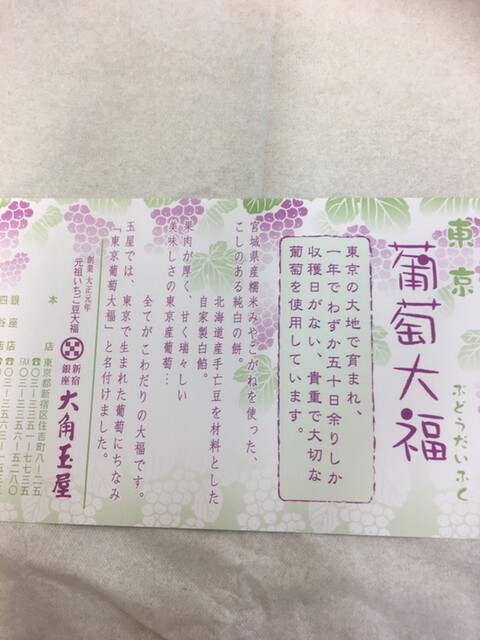 東京
葡萄大福
ぶどうだいふく
東京の大地で育まれ、
一年でわずか五十日余りしか
収穫日がない、貴重で大切な
葡萄を使用しています。
宮城県産糯米みやこがねを使った、
こしのある純白の餅。
北海道産手亡豆を材料とした
自家製白餡。
果肉が厚く、甘く瑞々しい
美味しさの東京産葡萄…
全てがこわだりの大福です。
玉屋では、東京で生まれた葡萄にちなみ
「東京葡萄大福」と名付けました。
創業 大正元年
元祖いちご豆大福
新宿
銀座
大角玉屋
本店 東京都新宿区住吉町八ー二五
☎〇三ー三三五一ー七七三五
FAX〇三ー三三五
銀座店
四谷店